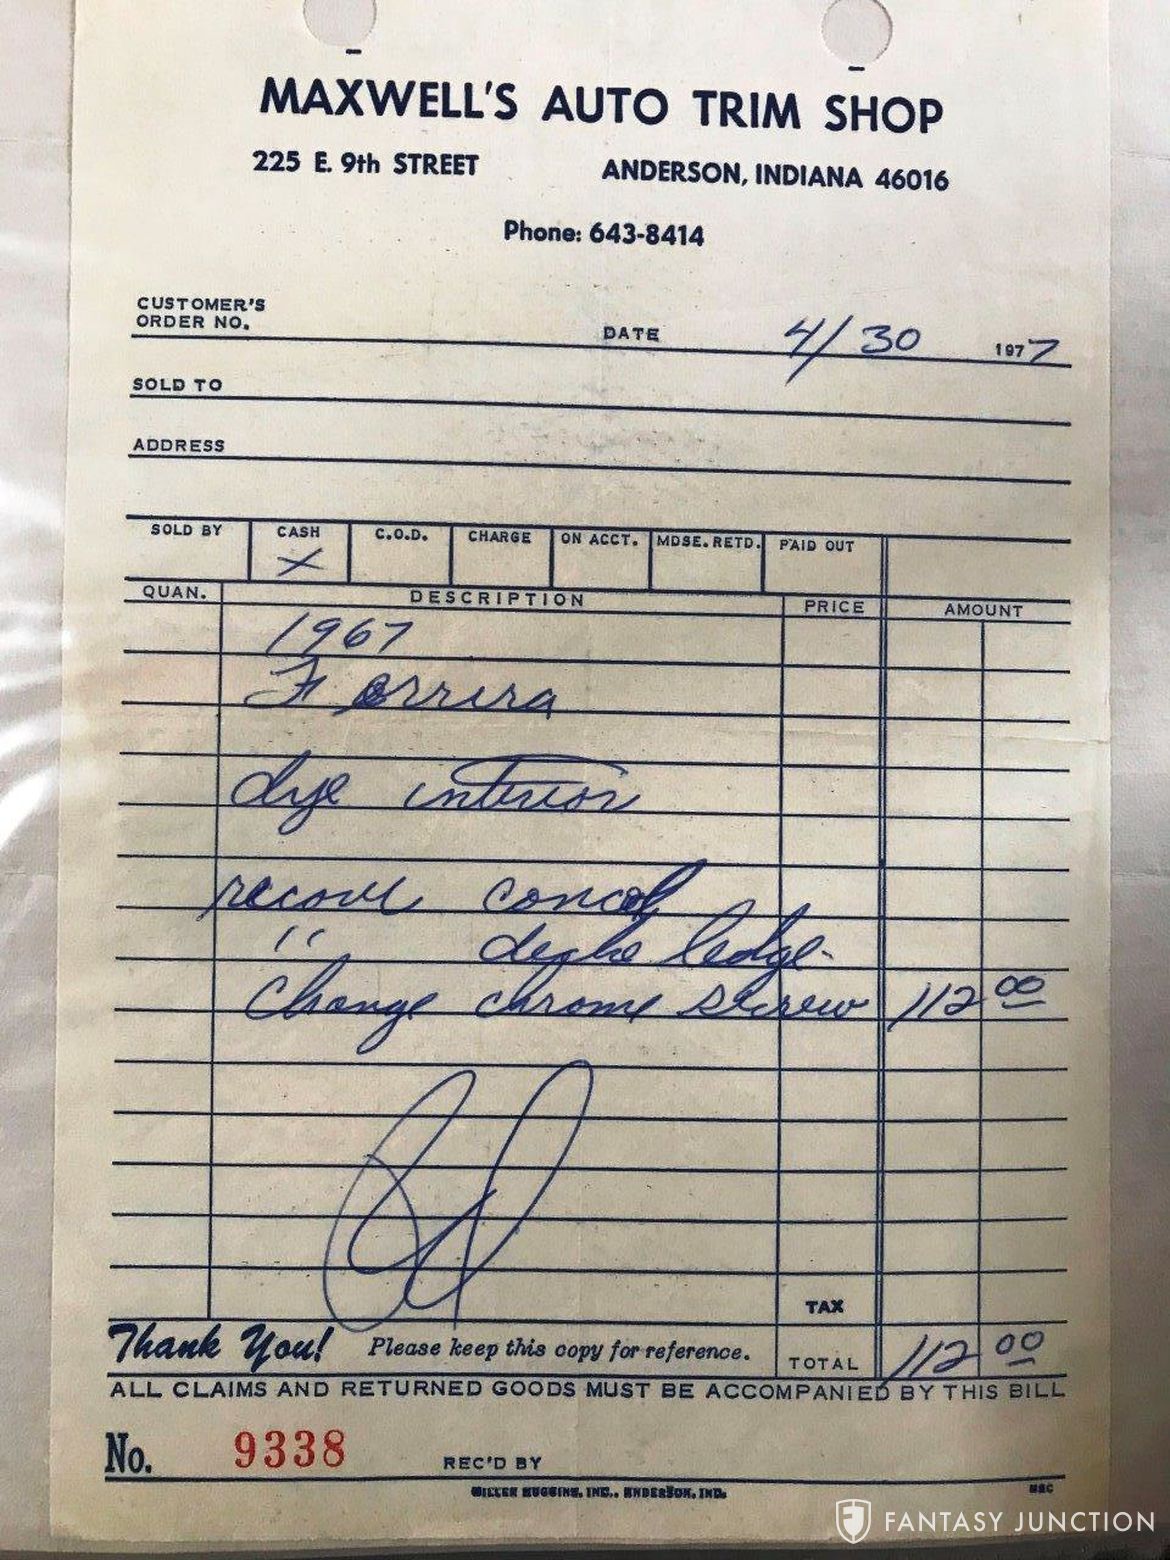 MAXWELL'S AUTO TRIM SHOP
225 E. 9th STREET ANDERSON, INDIANA 46016
Phone: 643-8414
CUSTOMER'S
ORDER NO. DATE 4/30 1977
SOLD TO
ADDRESS
SOLD BY CASH C.O.D. CHARGE ON ACCT. MDSE. RETD. PAID OUT
X
QUAN. DESCRIPTION PRICE AMOUNT
1967
Forrira
dye interior
recover concol
" ledge
Change chrome screw 112 00
TAX
Thank You! Please keep this copy for reference. TOTAL 112 00
ALL CLAIMS AND RETURNED GOODS MUST BE ACCOMPANIED BY THIS BILL
No. 9338 REC'D BY
MILLER HUGGINS, INC., ANDERSON, IND.
FANTASY JUNCTION